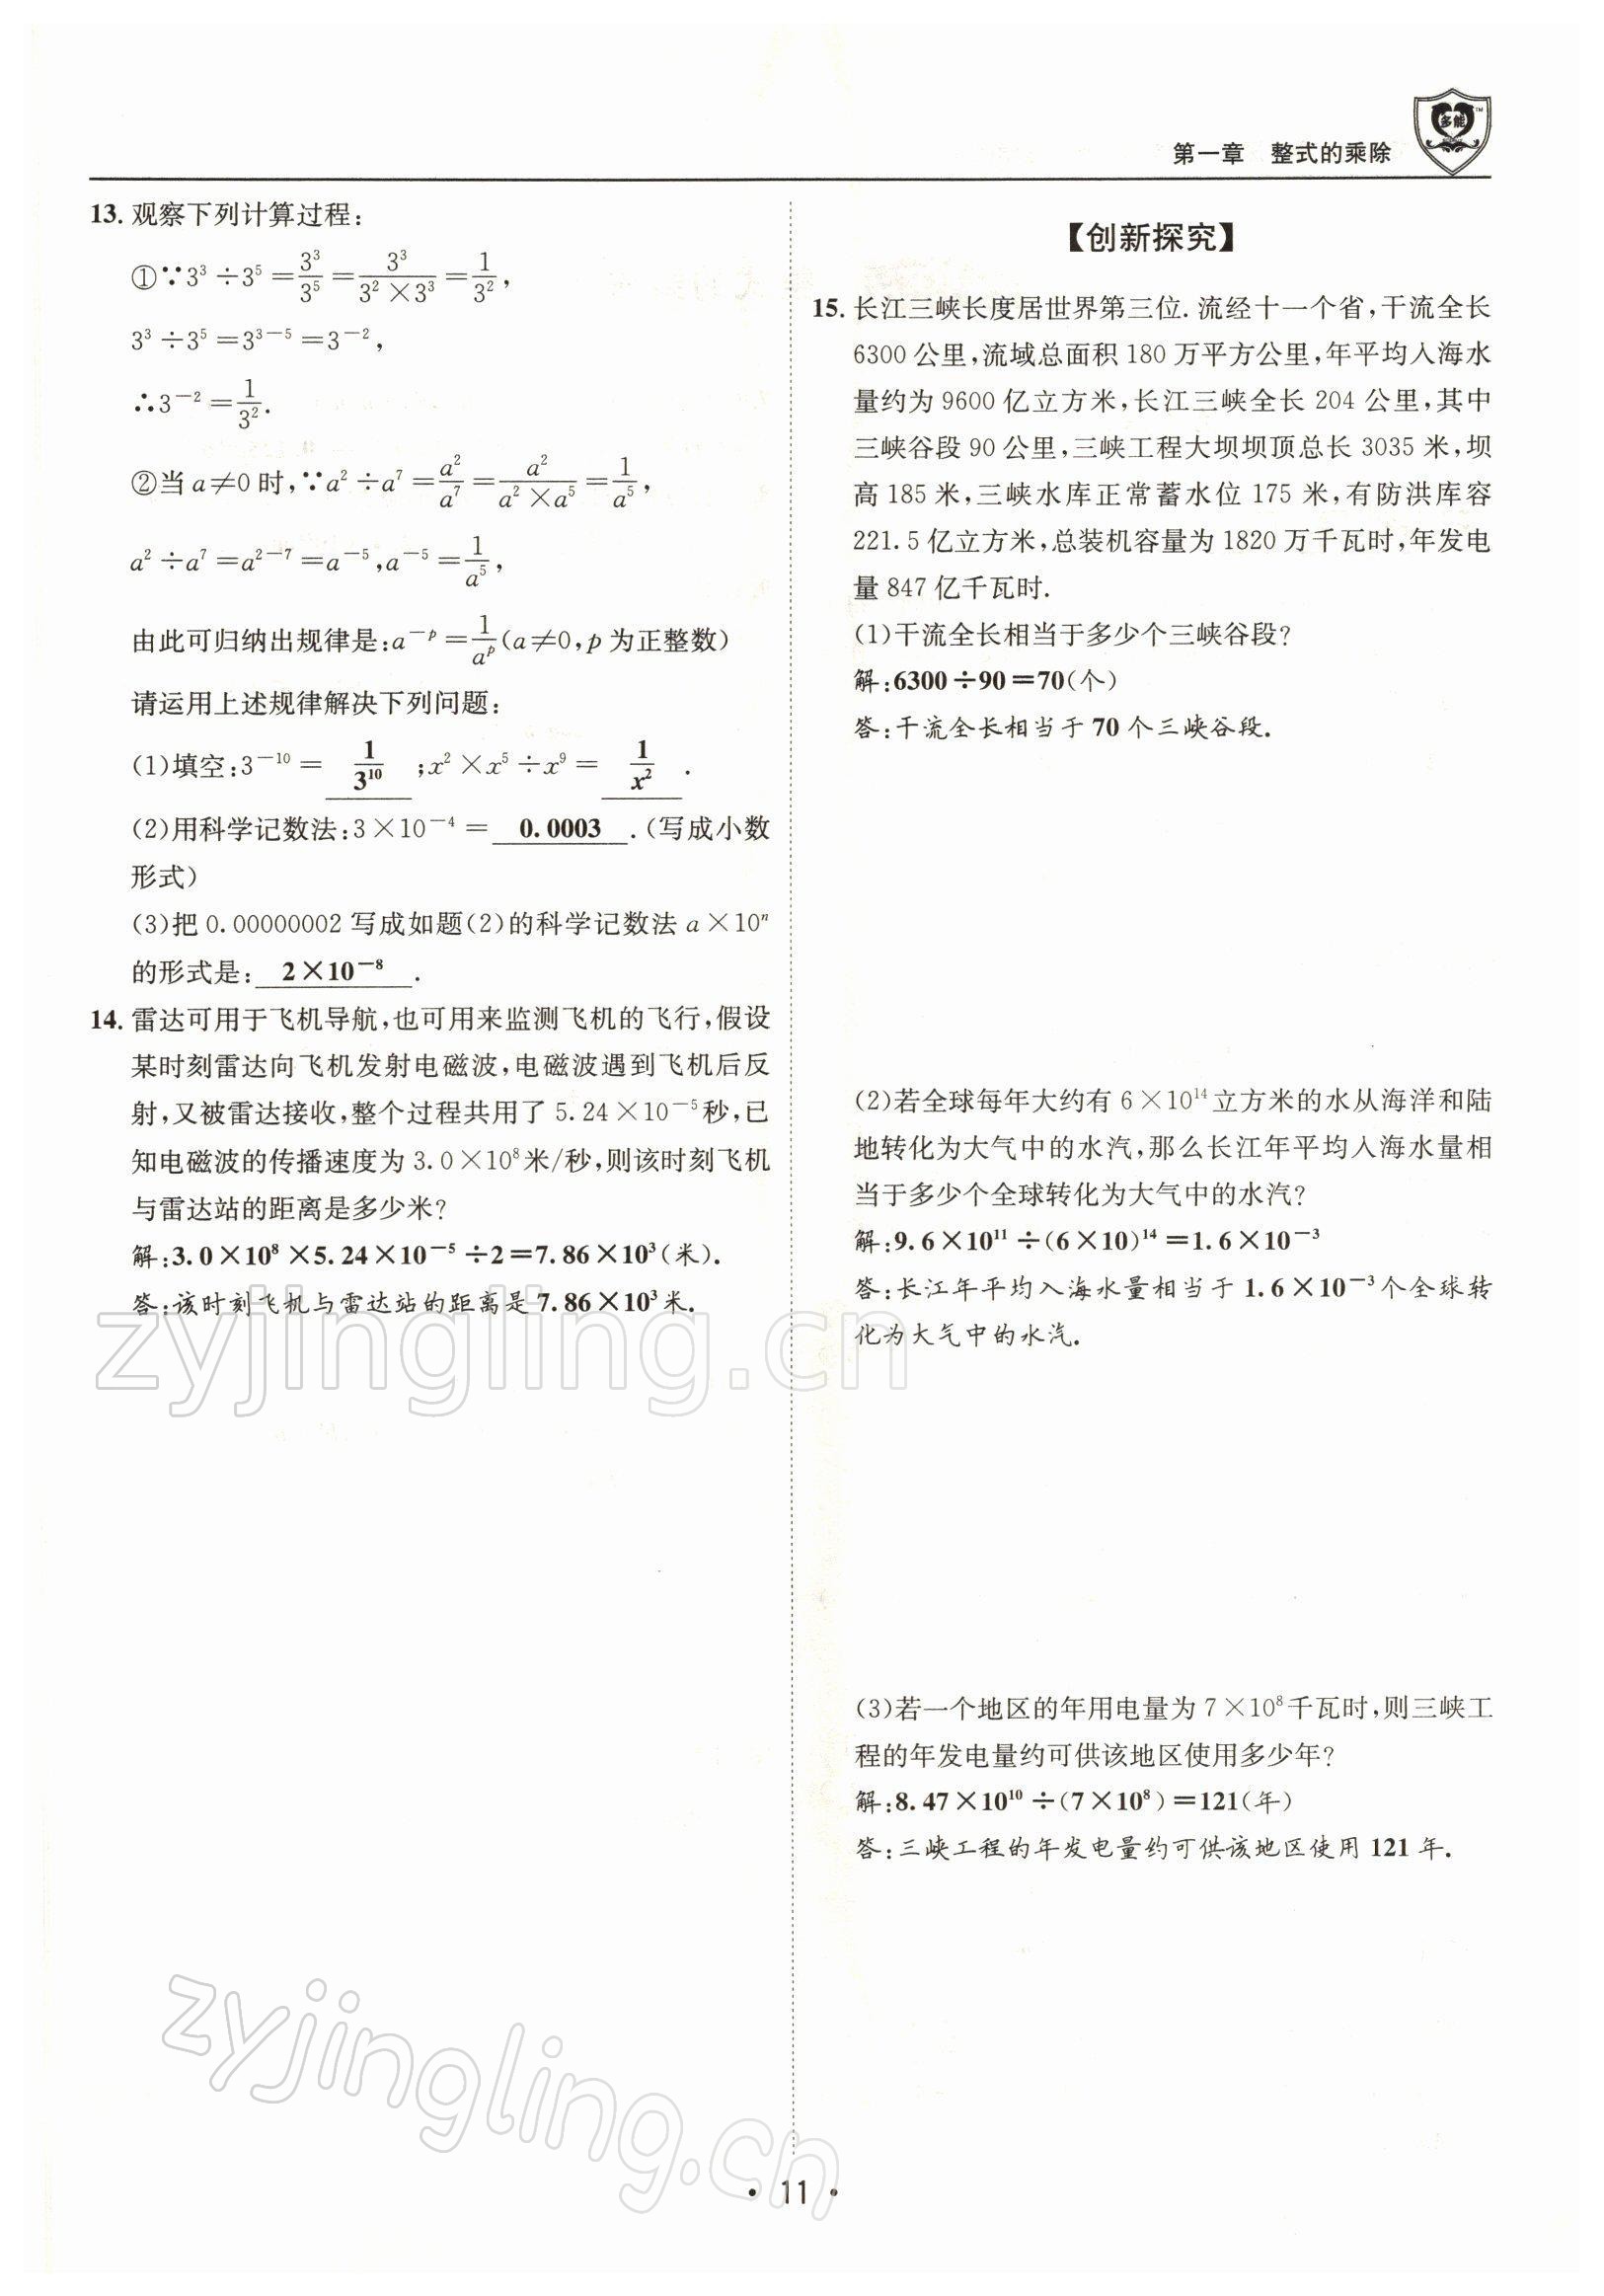 第一章 整式的乘除
多能
TM
13. 观察下列计算过程:
①∵3³÷3⁵=3³/3⁵=3³/(3²×3³)=1/3²,
3³÷3⁵=3³⁻⁵=3⁻²,
∴3⁻²=1/3².
②当a≠0时,∵a²÷a⁷=a²/a⁷=a²/(a²×a⁵)=1/a⁵,
a²÷a⁷=a²⁻⁷=a⁻⁵,a⁻⁵=1/a⁵,
由此可归纳出规律是:a⁻ᵖ=1/aᵖ(a≠0,p为正整数)
请运用上述规律解决下列问题:
(1)填空:3⁻¹⁰= 1/3¹⁰ ;x²×x⁵÷x⁹= 1/x² .
(2)用科学记数法:3×10⁻⁴= 0.0003 .(写成小数
形式)
(3)把0.00000002写成如题(2)的科学记数法a×10ⁿ
的形式是: 2×10⁻⁸ .
14. 雷达可用于飞机导航,也可用来监测飞机的飞行,假设
某时刻雷达向飞机发射电磁波,电磁波遇到飞机后反
射,又被雷达接收,整个过程共用了5.24×10⁻⁵秒,已
知电磁波的传播速度为3.0×10⁸米/秒,则该时刻飞机
与雷达站的距离是多少米?
解:3.0×10⁸×5.24×10⁻⁵÷2=7.86×10³(米).
答:该时刻飞机与雷达站的距离是7.86×10³米.
【创新探究】
15. 长江三峡长度居世界第三位.流经十一个省,干流全长
6300公里,流域总面积180万平方公里,年平均入海水
量约为9600亿立方米,长江三峡全长204公里,其中
三峡谷段90公里,三峡工程大坝坝顶总长3035米,坝
高185米,三峡水库正常蓄水位175米,有防洪库容
221.5亿立方米,总装机容量为1820万千瓦时,年发电
量847亿千瓦时.
(1)干流全长相当于多少个三峡谷段?
解:6300÷90=70(个)
答:干流全长相当于70个三峡谷段.
(2)若全球每年大约有6×10¹⁴立方米的水从海洋和陆
地转化为大气中的水汽,那么长江年平均入海水量相
当于多少个全球转化为大气中的水汽?
解:9.6×10¹¹÷(6×10)¹⁴=1.6×10⁻³
答:长江年平均入海水量相当于1.6×10⁻³个全球转
化为大气中的水汽.
(3)若一个地区的年用电量为7×10⁸千瓦时,则三峡工
程的年发电量约可供该地区使用多少年?
解:8.47×10¹⁰÷(7×10⁸)=121(年)
答:三峡工程的年发电量约可供该地区使用121年.
zyjingling.cn
zyjingling.cn
• 11 •